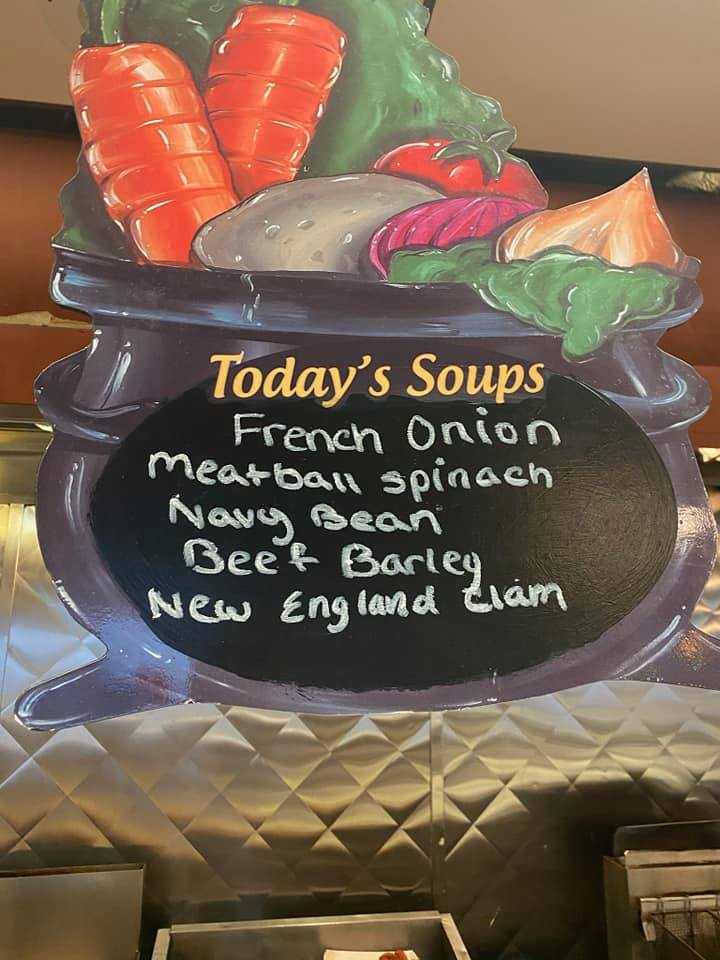 Today's Soups
French Onion
Meatball spinach
Navy Bean
Beef Barley
New England Clam